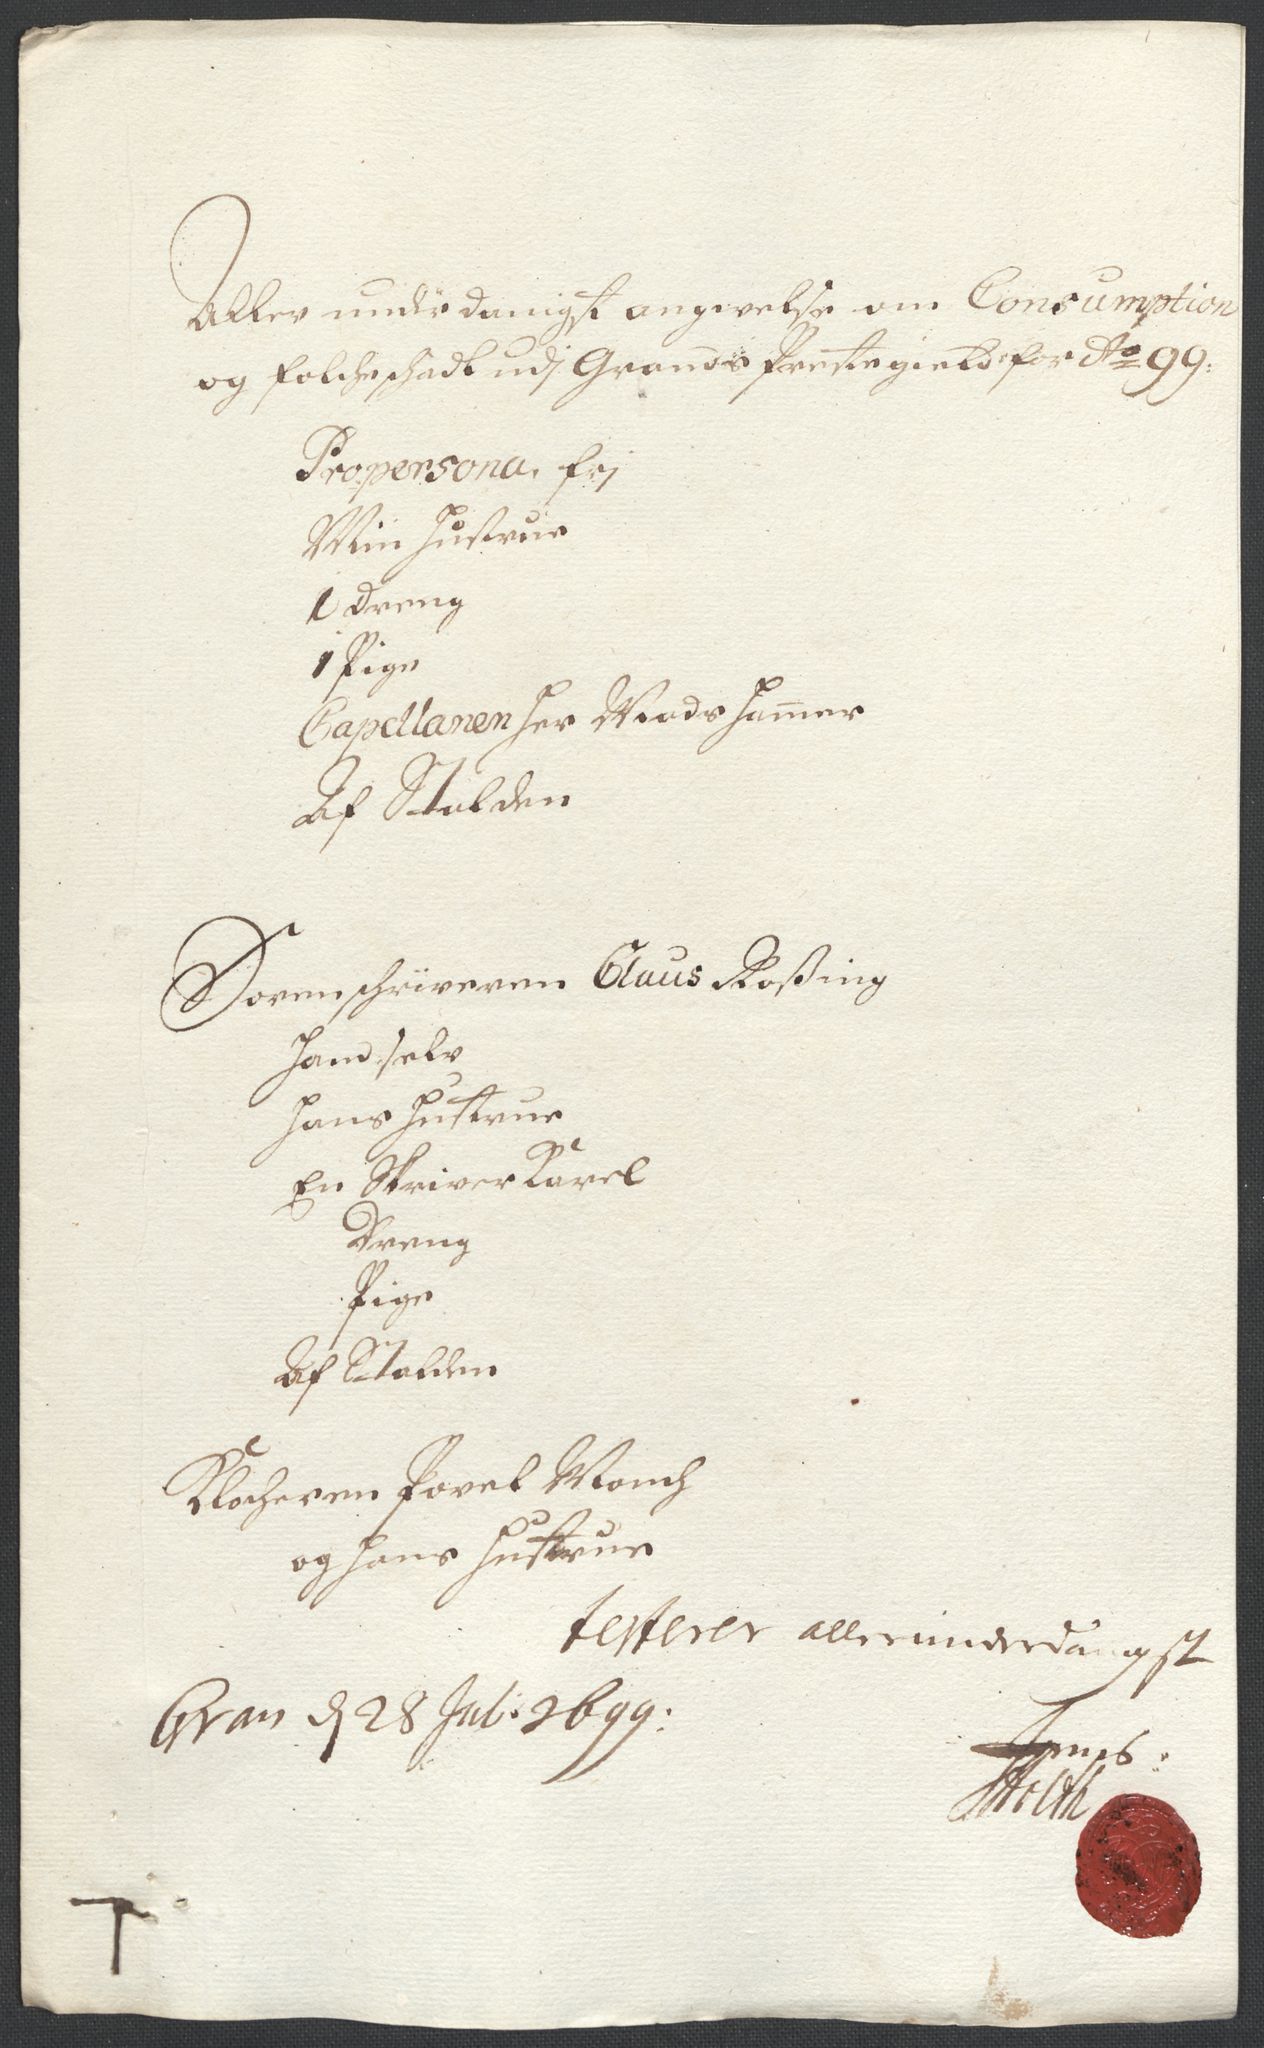 Aller underdanigst angivelse om Consumption
og folcheschadt udj Grans Prestegield for Ao 99:
Pro persona, frj
Min Hustrue
1 Dreng
1 Pige
Capellanen Her Mads Hammer
Af Stalden
Sorenschriveren Claus Roßing
Hand selv
Hans Hustrue
En Skriver Karel
Dreng
Pige
Af Stalden
Klocheren Povel Monch
og Hans Hustrue
testerer allerunderdanigst
Gran d 28 Juli 1699: